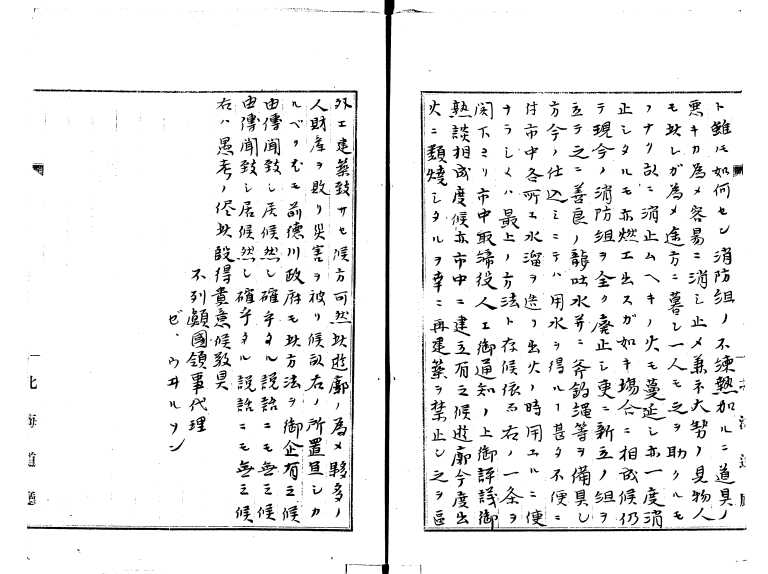 ト雖モ如何セン消防組ノ不練熟加ルニ道具ノ
悪キカ為メ容易ニ消シ止メ兼末大勢ノ見物人
モ此レガ為メ途方ニ暮レ一人モ之ヲ助クルモ
ノナク故ニ消止ムヘキノ火モ蔓延シ亦一度消
止シタルモ亦燃エ出スガ如キ場合ニ相成候仍
テ現今ノ消防組ヲ全ク廃止シ更ニ新立ノ組ヲ
立テ之ニ善良ノ龍吐水并ニ斧鈎縄等ヲ備具シ
方今ノ仕込ミニテハ用水ヲ得ル甚タ不便ニ
付市中各所エ水溜ヲ造リ出火ノ時用エルニ便
ナラシムハ最上ノ方法ト存候依而右ノ一条ヲ
閣下ヨリ市中取締役人エ御通知ノ上御評議御
熟談相成度候亦市中ニ建立有之候遊廓今度出
火ニ類焼シタルヲ幸ニ再建築ヲ禁止シ之ヲ区
外エ建築致サセ候方可然此遊廓ノ為メ夥多ノ
人財産ヲ敗リ災害ヲ被リ候故右ノ所置宜シカ
ルベク尤モ前徳川政府モ此方法ヲ御企有之候
由傳聞致シ候然シ確乎タル説話ニモ無之候
由傳聞致シ居候然シ確乎タル説話ニモ無之候
右ハ愚考ノ侭此段得貴意候敬具
不列顛國領事代理
ゼ、ウヰルソン
北海道廳